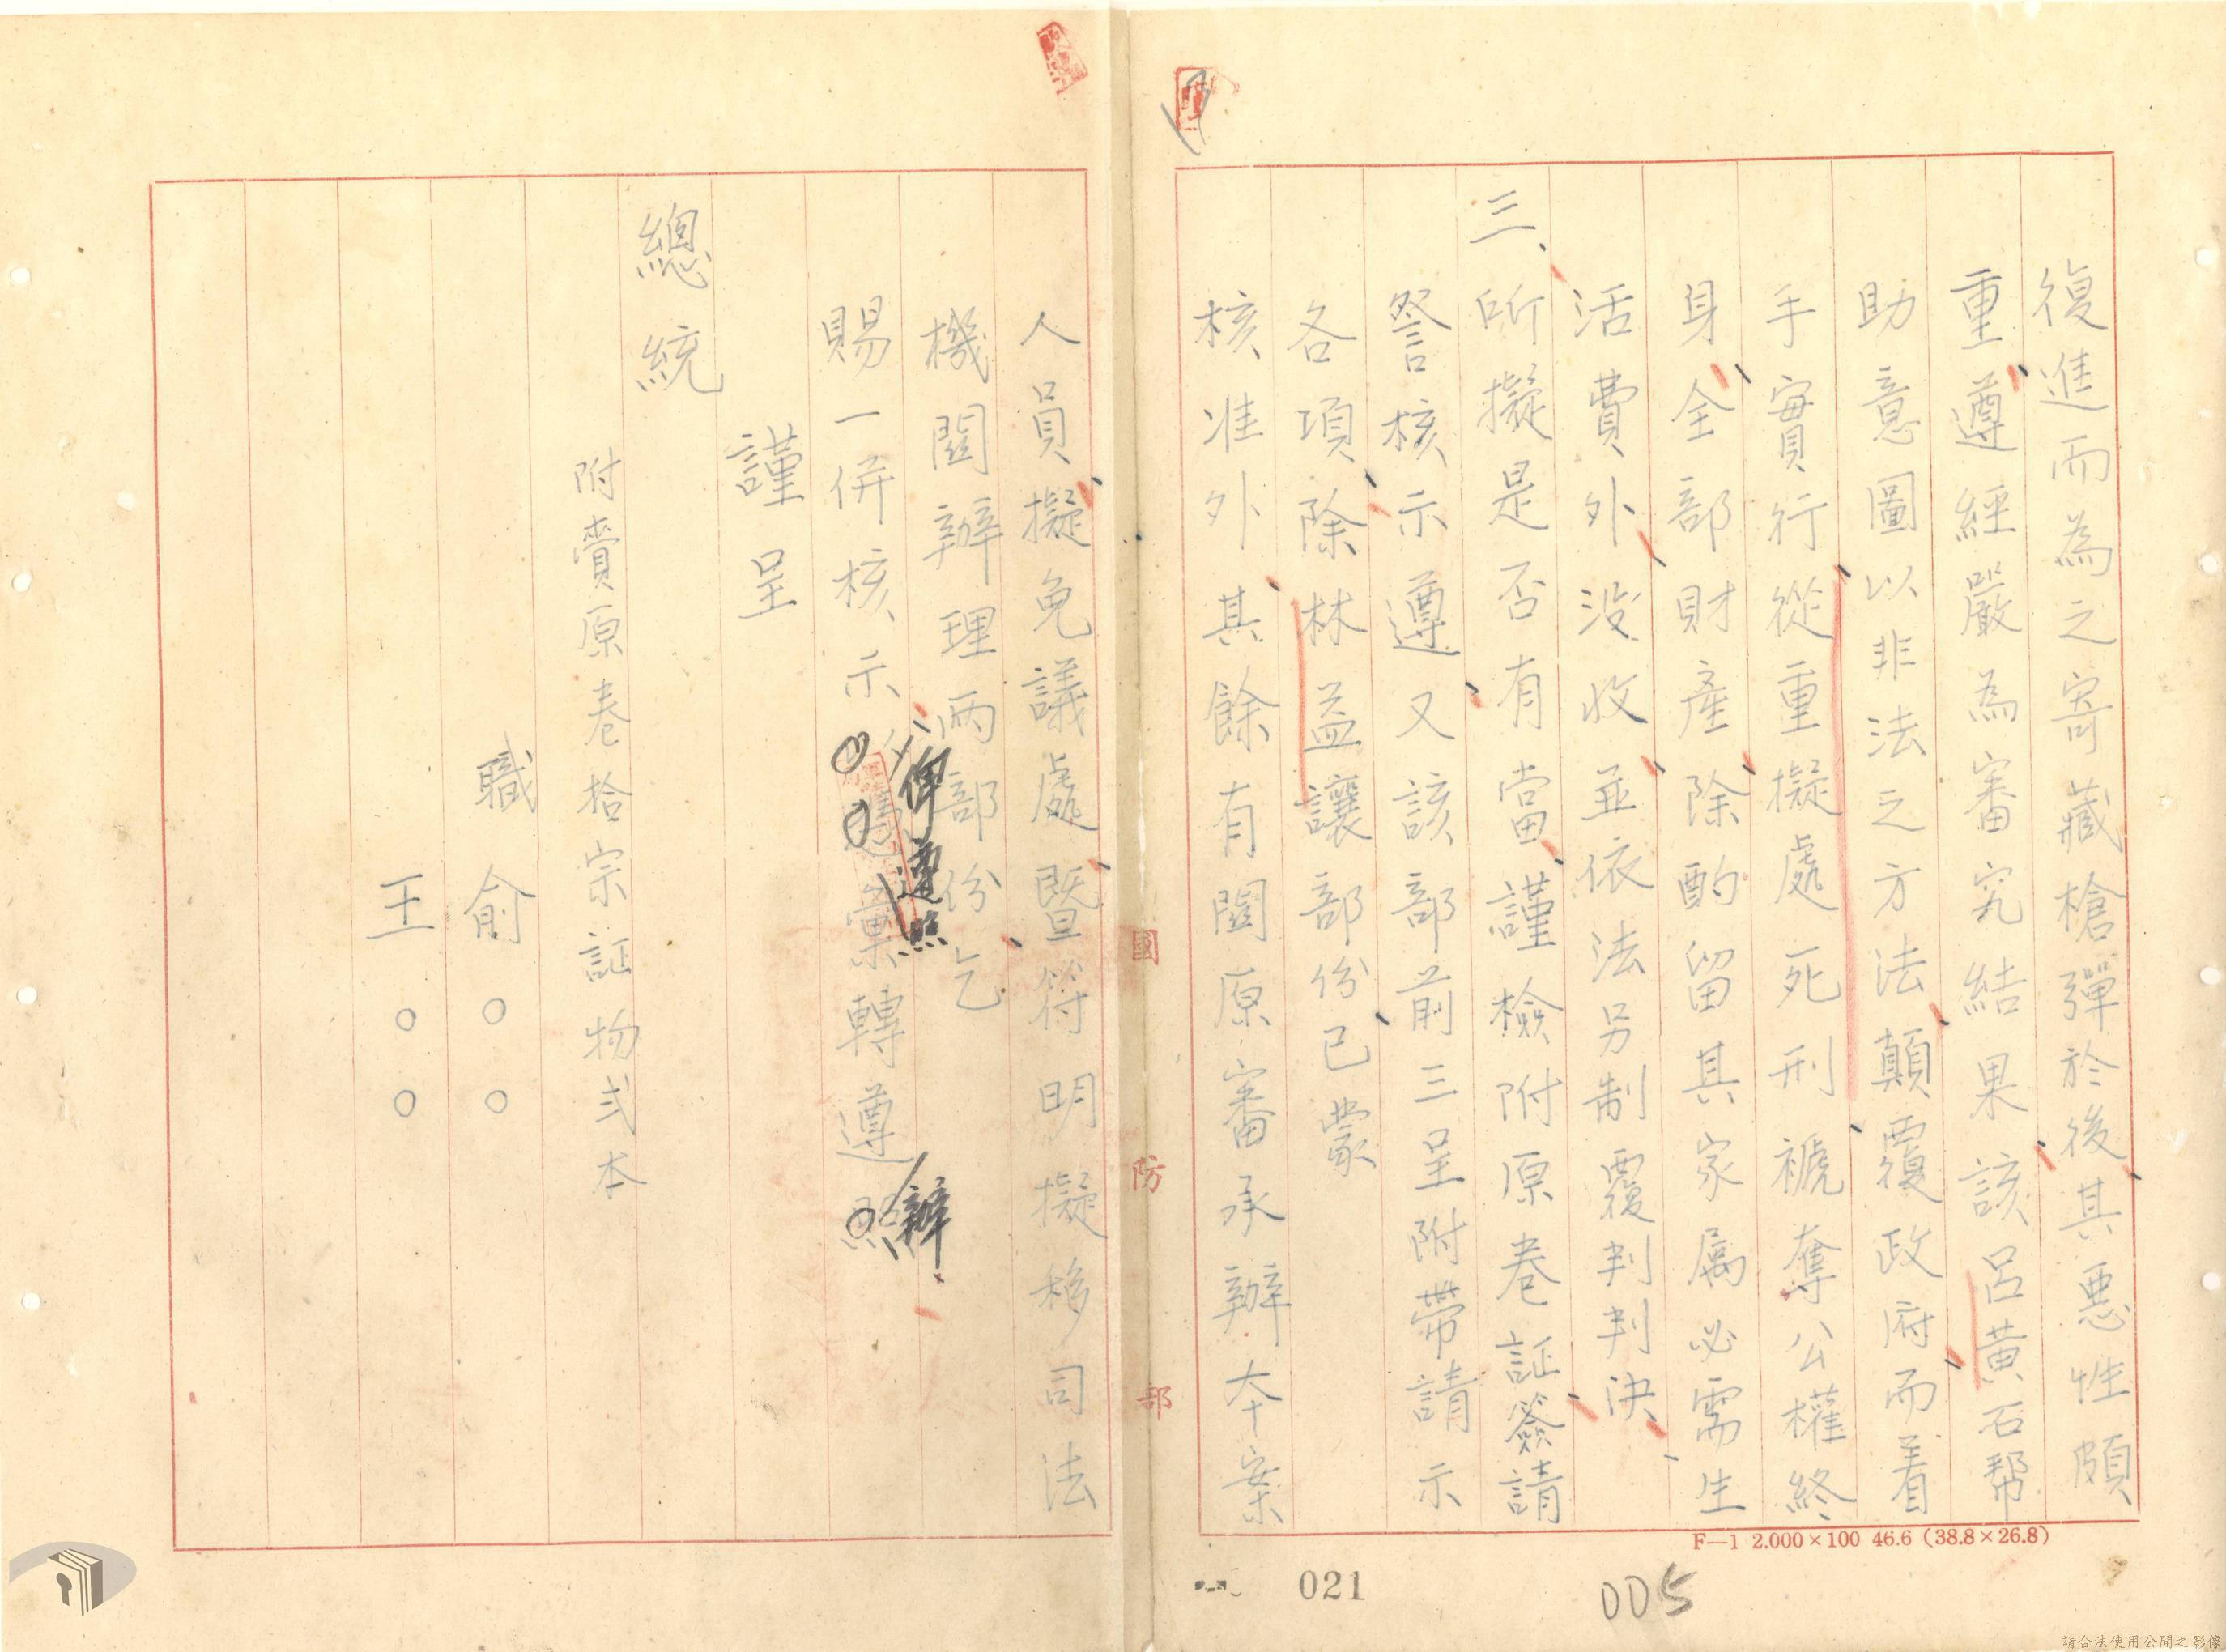 復進而為之寄藏槍彈於後其惡性頗
重遵經嚴為審究結果該呂黃石幫
助意圖以非法之方法顛覆政府而着
手實行從重擬處死刑褫奪公權終
身全部財產除酌留其家屬必需生
活費外沒收並依法另制覆判判決
三、所擬是否有當謹檢附原卷証簽請
詧核示遵又該部前三呈附帶請示
各項除林益讓部份已蒙
核准外其餘有關原審承辦本案
國防部
F—1 2.000×100 46.6 (38.8×26.8)
021
005
人員擬免議處暨符明擬移司法
機關辦理兩部份乞
賜一併核示俾遵照彙轉遵辦
謹呈
總統
附賫原卷拾宗証物弍本
職俞○○
王○○
請合法使用公開之影像